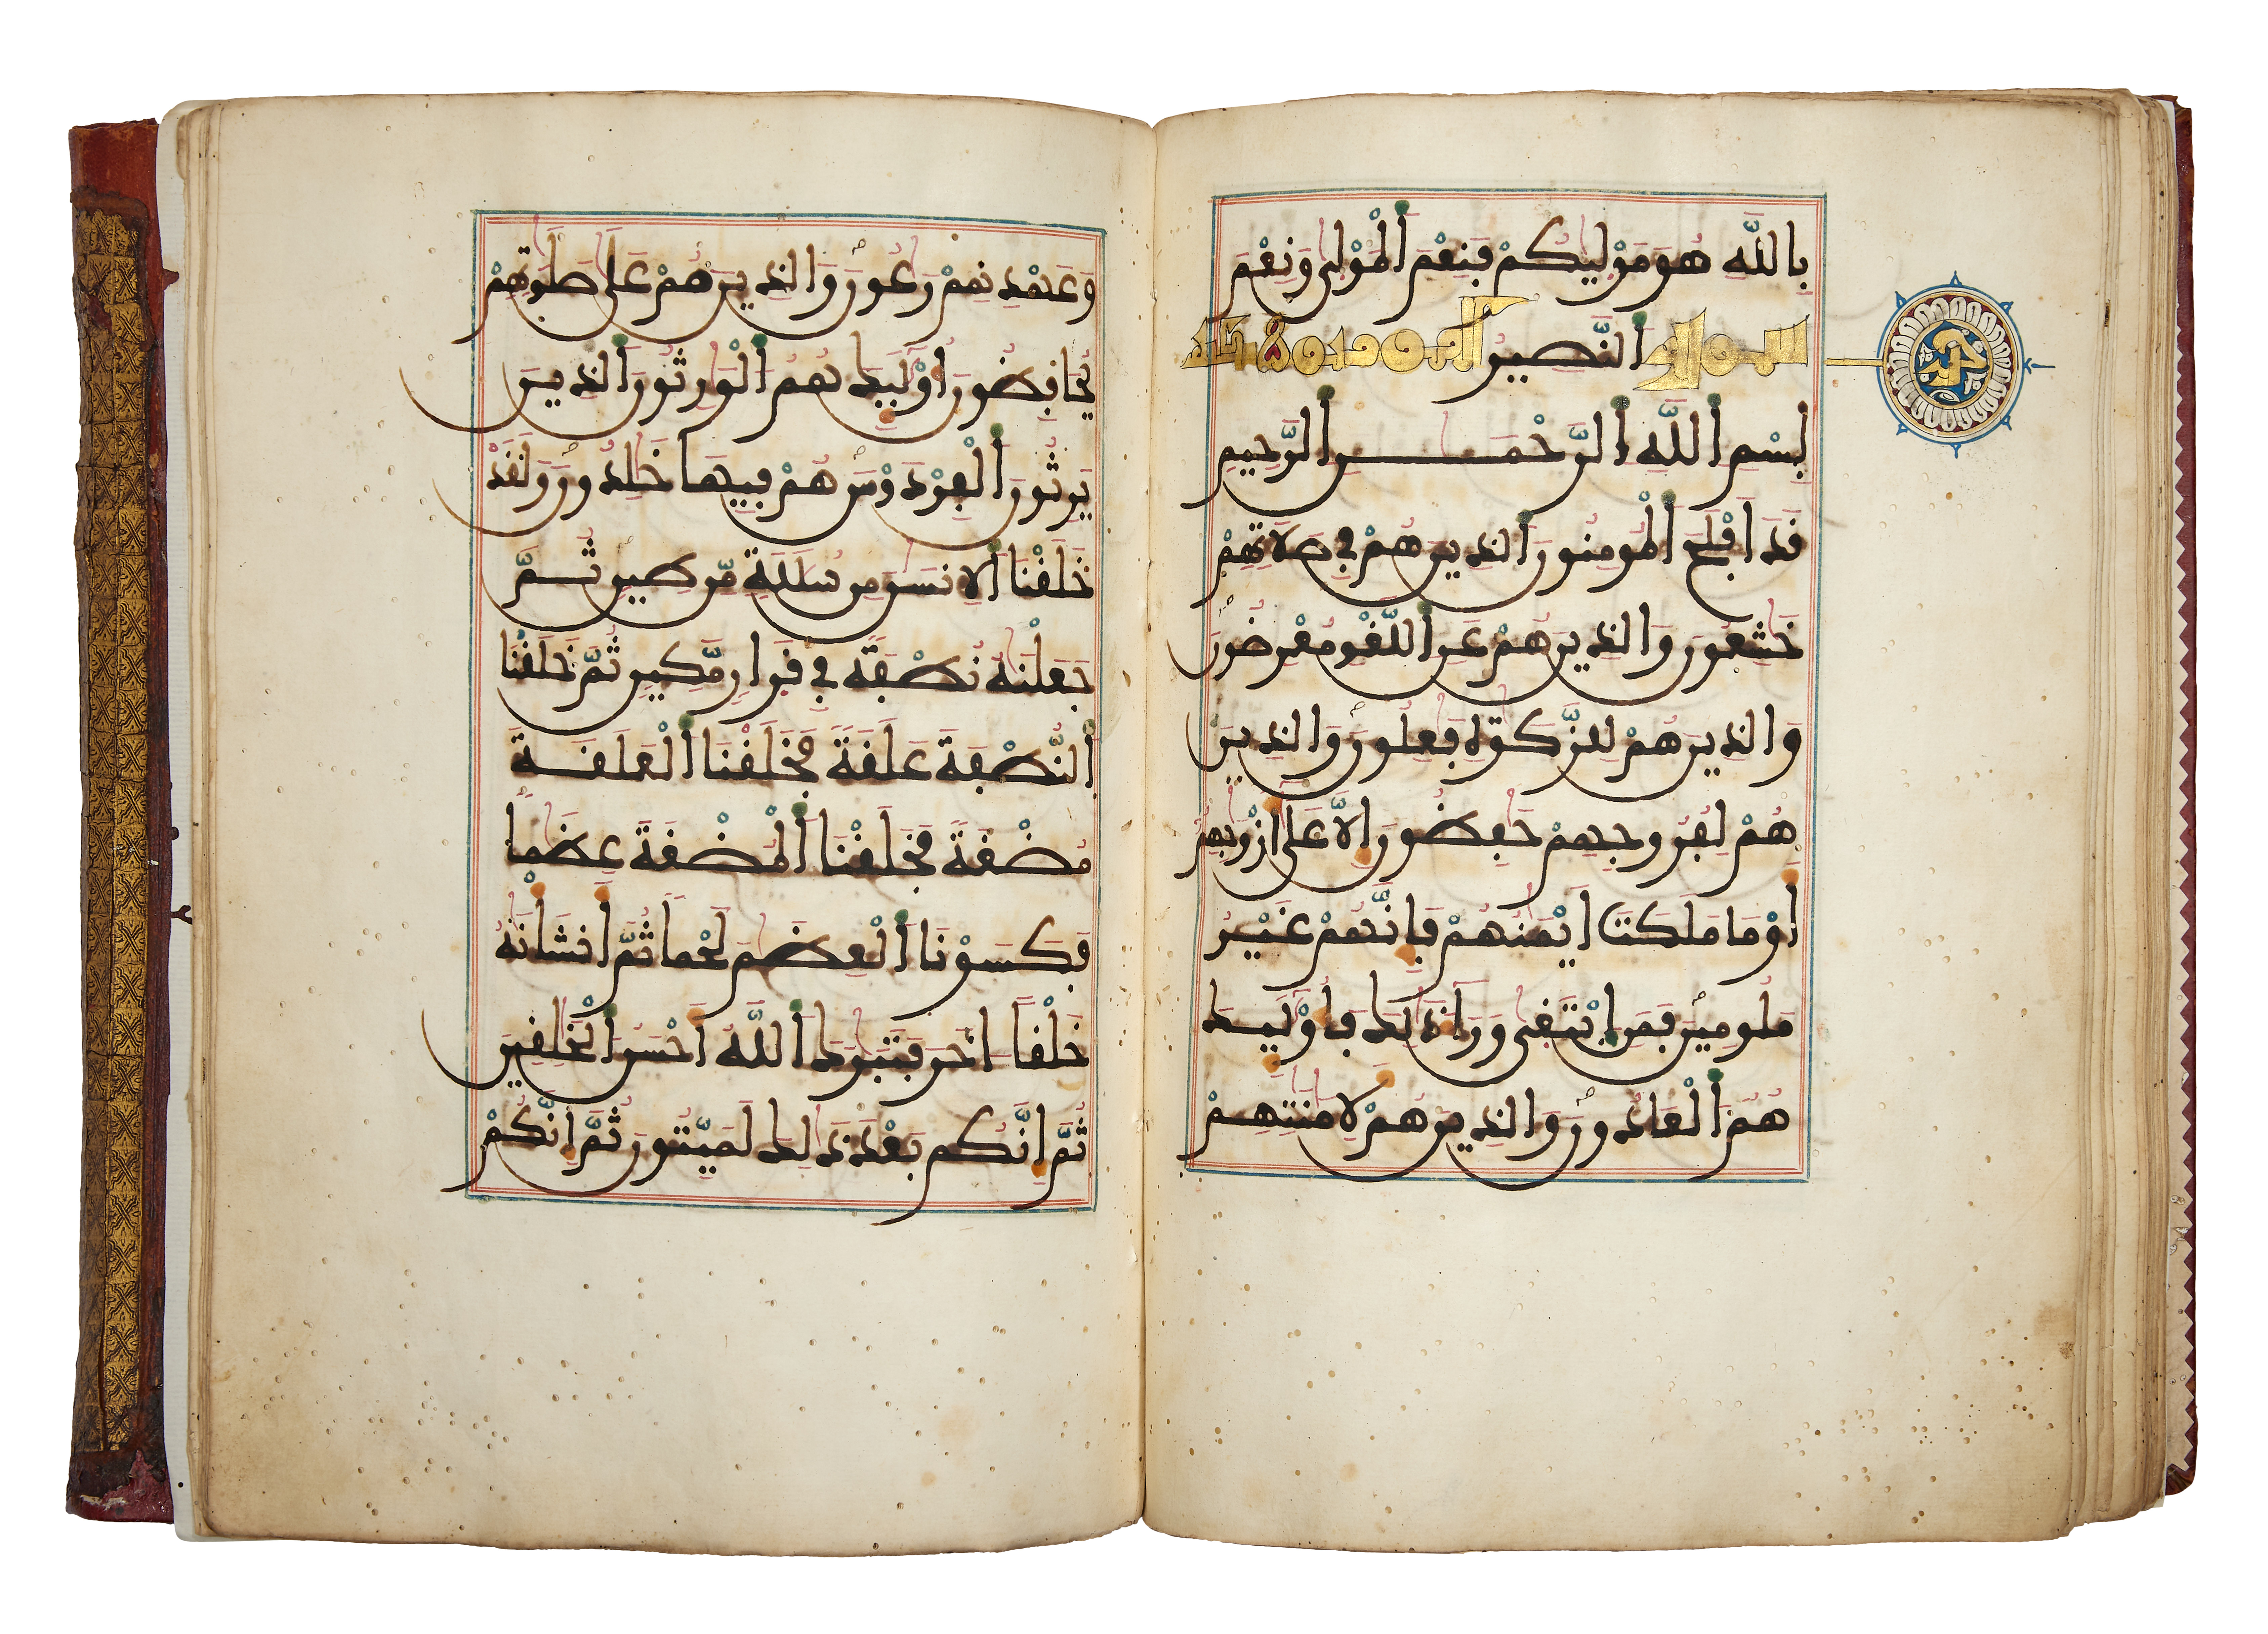 بِاللَّهِ هُوَ مَوْلَيٰكُمْ فَنِعْمَ اَ۬لْمَوْلٰى وَنِعْمَ
سورة اَ۬لنَّصِيرُ المومنون
بِسْمِ اِ۬للَّهِ اِ۬لرَّحْمَٰنِ اِ۬لرَّحِيمِ
قَدَ اَفْلَحَ اَ۬لْمُومِنُونَ اَ۬لذِينَ هُمْ فِي صَلَاتِهِمْ
خَٰشِعُونَ وَالذِينَ هُمْ عَنِ اِ۬للَّغْوِ مُعْرِضُونَ
وَالذِينَ هُمْ لِلزَّكَوٰةِ فَٰعِلُونَ وَالذِينَ
هُمْ لِفُرُوجِهِمْ حَٰفِظُونَ إِلَّا عَلَىٰ أَزْوَٰجِهِمُ
أَوْ مَا مَلَكَتَ اَيْمَٰنُهُمْ فَإِنَّهُمْ غَيْرُ
مَلُومِينَ فَمَنِ اِ۪بْتَغٰى وَرَآءَ ذَٰلِكَ فَأُوْلَٰٓئِكَ
هُمُ اُ۬لْعَادُونَ وَالذِينَ هُمْ لِأَمَٰنَٰتِهِمْ
وَعَهْدِهِمْ رَٰعُونَ وَالذِينَ هُمْ عَلَىٰ صَلَوَٰتِهِمْ
يُحَافِظُونَ أُوْلَٰٓئِكَ هُمُ اُ۬لْوَٰرِثُونَ اَ۬لذِينَ
يَرِثُونَ اَ۬لْفِرْدَوْسَ هُمْ فِيهَا خَٰلِدُونَ وَلَقَدْ
خَلَقْنَا اَ۬لِانسَٰنَ مِن سُلَٰلَةٍ مِّن طِينٍ ثُمَّ
جَعَلْنَٰهُ نُطْفَةً فِي قَرَارٍ مَّكِينٍ ثُمَّ خَلَقْنَا
اَ۬لنُّطْفَةَ عَلَقَةً فَخَلَقْنَا اَ۬لْعَلَقَةَ
مُضْغَةً فَخَلَقْنَا اَ۬لْمُضْغَةَ عِظَٰمًا
فَكَسَوْنَا اَ۬لْعِظَٰمَ لَحْمًا ثُمَّ أَنشَأْنَٰهُ
خَلْقًا اٰخَرَ فَتَبَٰرَكَ اَ۬للَّهُ أَحْسَنُ اُ۬لْخَٰلِقِينَ
ثُمَّ إِنَّكُم بَعْدَ ذَٰلِكَ لَمَيِّتُونَ ثُمَّ إِنَّكُمْ